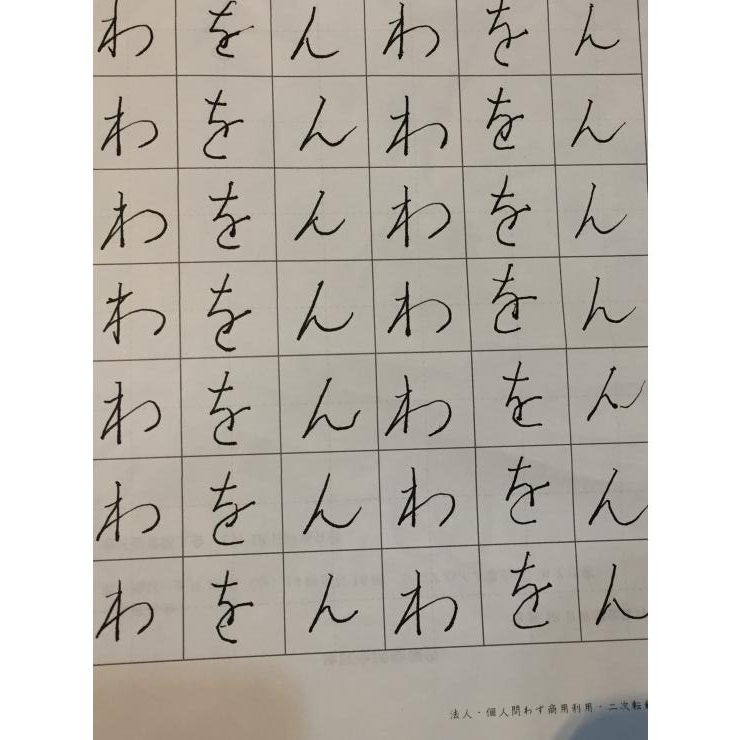 わ を ん わ を ん
わ を ん わ を ん
わ を ん わ を ん
わ を ん わ を ん
わ を ん わ を ん
わ を ん わ を ん
わ を ん わ を ん
法人・個人問わず商用利用・二次転